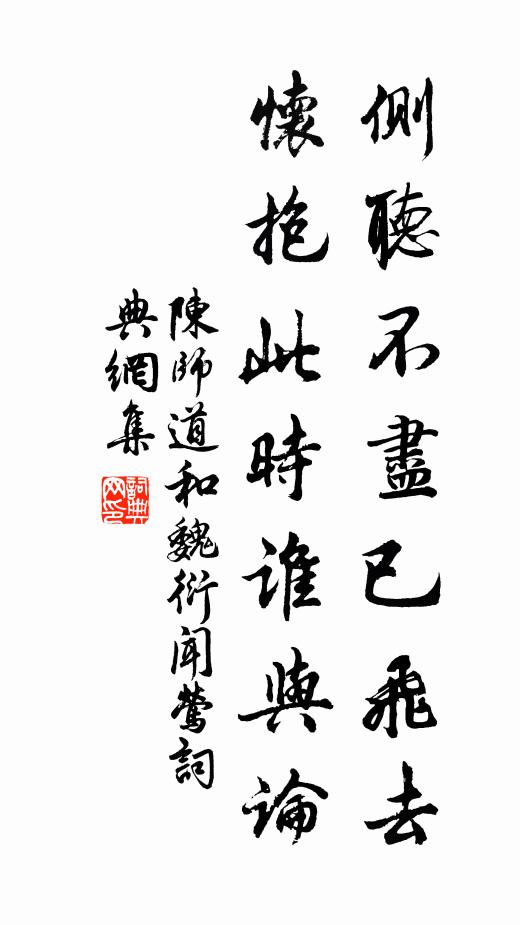 側聽不盡已飛去
懷抱此時誰與論
陳師道和魏衍聞鶯詞
典網集
詞典網印